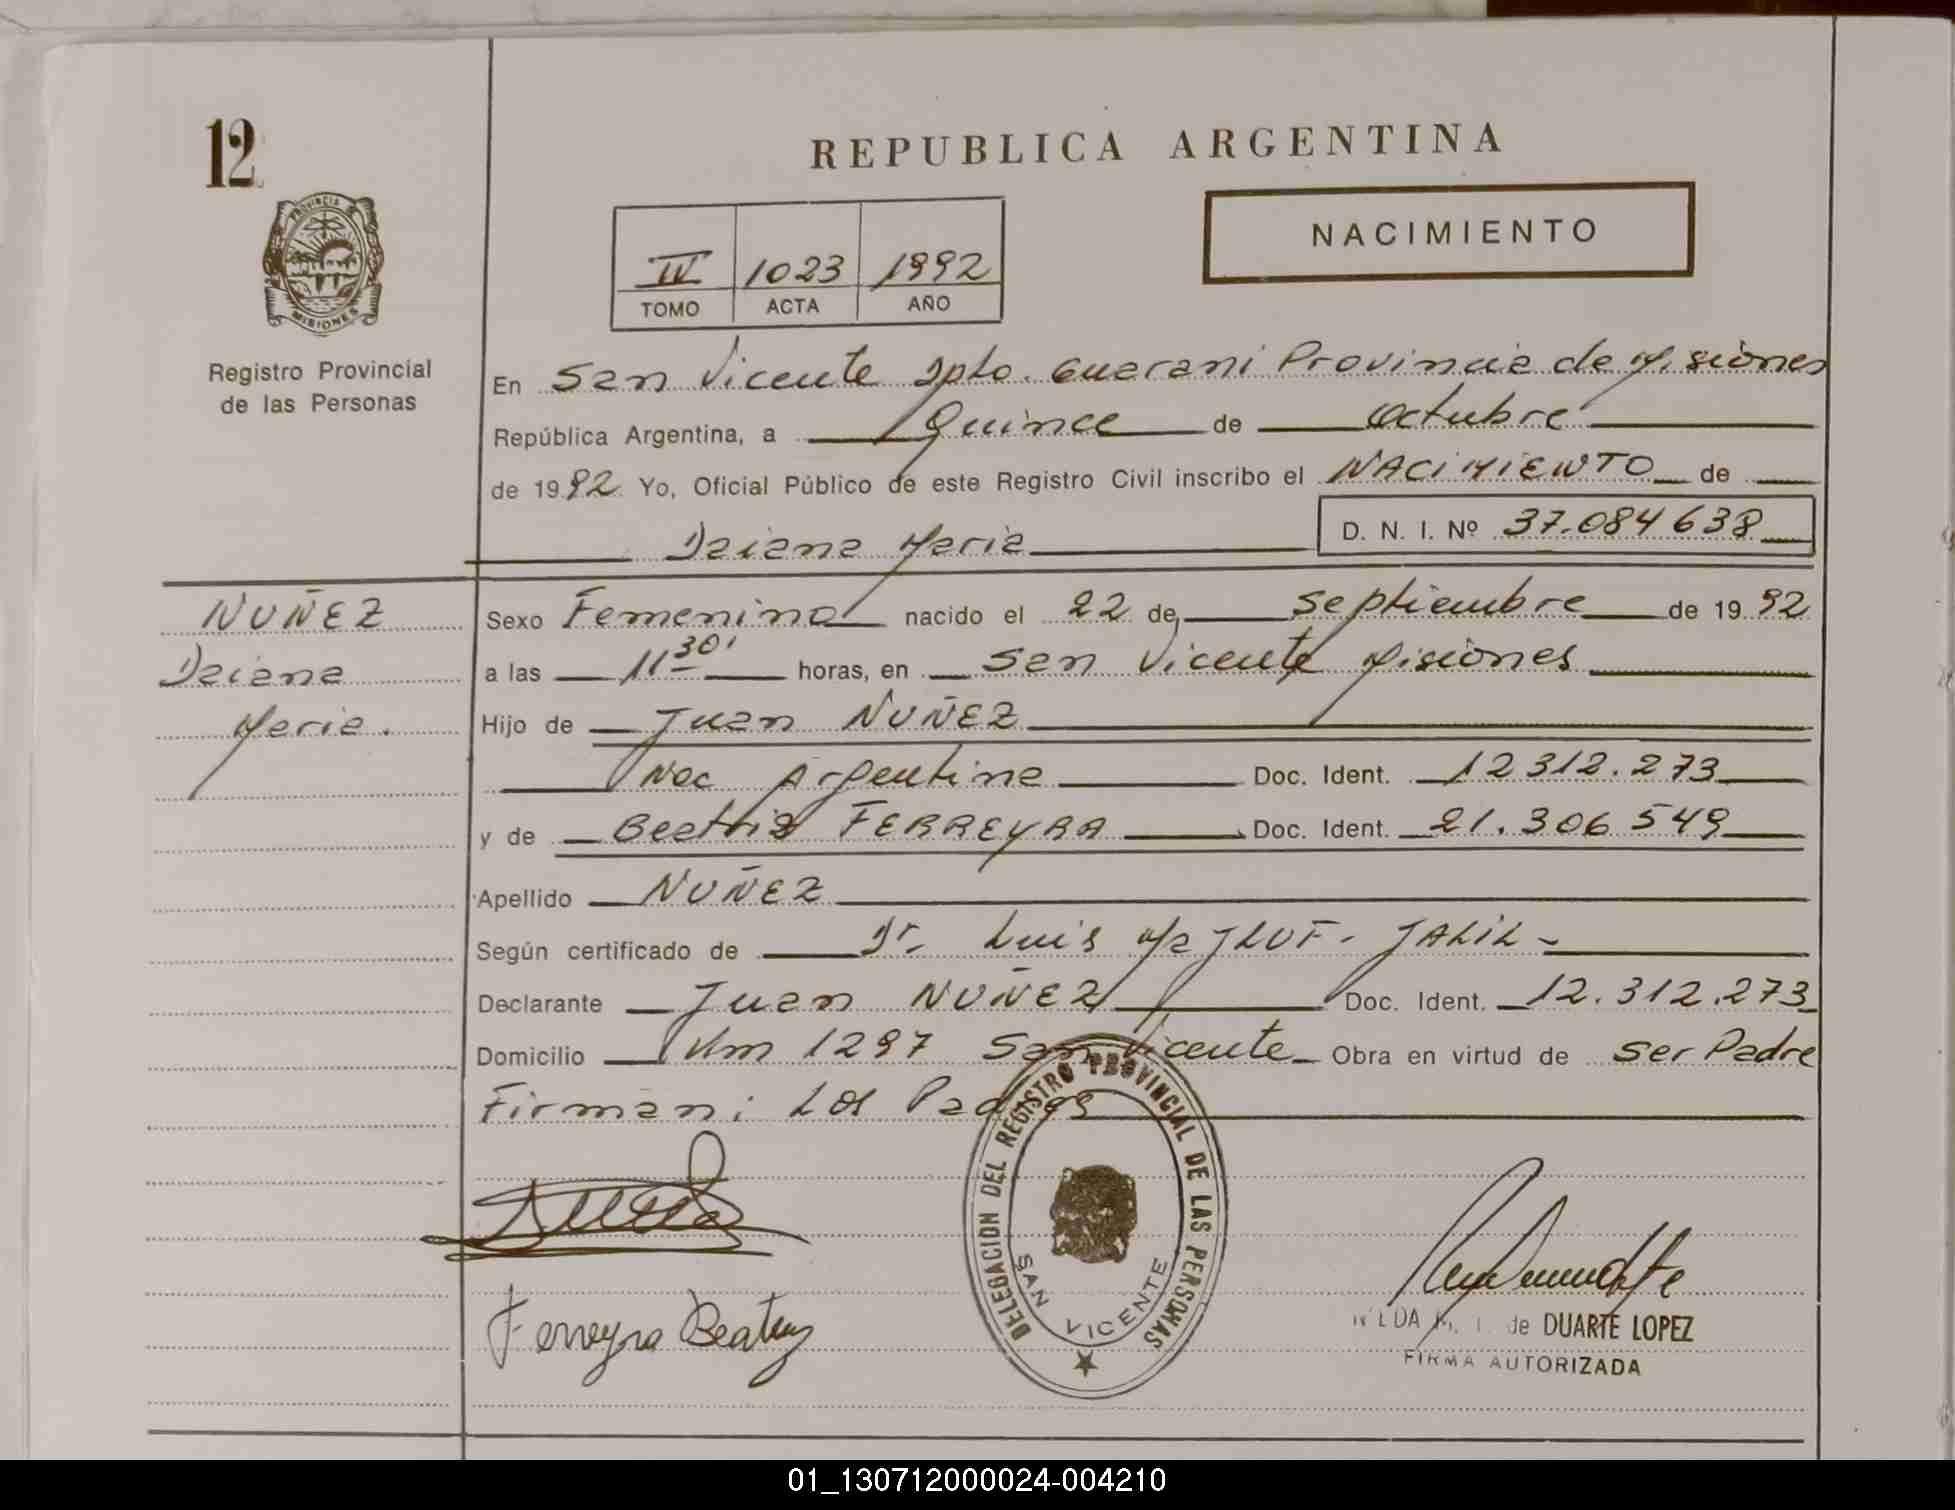 12
REPUBLICA ARGENTINA
PROVINCIA DE
MISIONES
NACIMIENTO
IV 1023 1992
TOMO ACTA AÑO
Registro Provincial
de las Personas
En San Vicente Dpto. Guarani Provincia de Misiones
República Argentina, a Quince de Octubre
de 1992 Yo, Oficial Público de este Registro Civil inscribo el NACIMIENTO de
Daiana Maria D. N. I. Nº 37.084638
NUÑEZ
Daiana
Maria.
Sexo Femenino nacido el 22 de Septiembre de 1992
a las 11 30' horas, en San Vicente Misiones
Hijo de Juan NUÑEZ
Nac Argentina Doc. Ident. 12312.273
y de Beatriz FERREYRA Doc. Ident. 21.306549
Apellido NUÑEZ
Según certificado de Dr. Luis JALIL
Declarante Juan NUÑEZ Doc. Ident. 12.312.273
Domicilio Km 1297 San Vicente Obra en virtud de ser Padre
Firman: Los Padres
DELEGACION DEL REGISTRO PROVINCIAL DE LAS PERSONAS
SAN VICENTE
Ferreyra Beatriz
de DUARTE LOPEZ
FIRMA AUTORIZADA
01_130712000024-004210